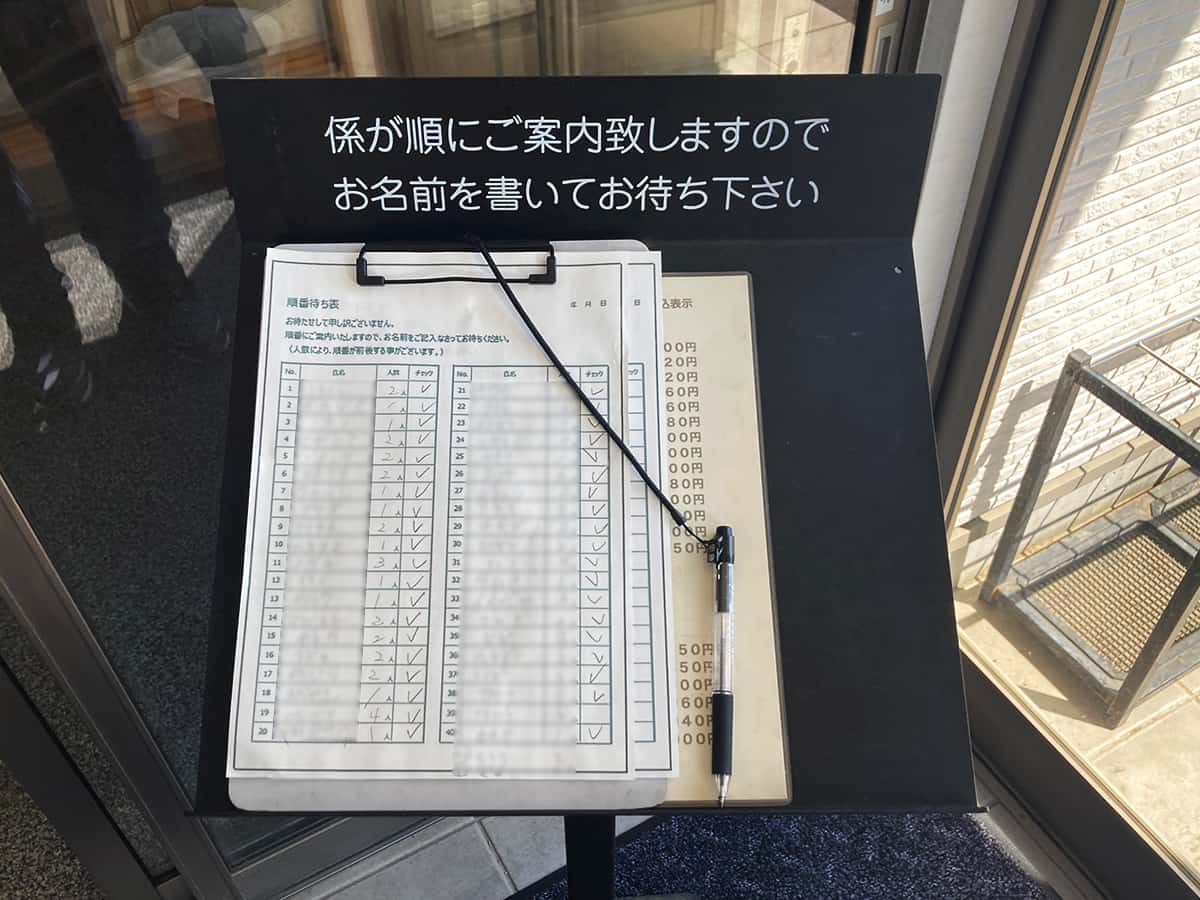 係が順にご案内致しますので
お名前を書いてお待ち下さい
順番待ち表
年 月 日
日
お待たせして申し訳ございません。
順番にご案内いたしますので、お名前をご記入なさってお待ちください。
（人数により、順番が前後する事がございます。）
No. 氏名 人数 チェック
1 2人 ✓
2 1人 ✓
3 1人 ✓
4 2人 ✓
5 2人 ✓
6 2人 ✓
7 1人 ✓
8 1人 ✓
9 2人 ✓
10 1人 ✓
11 3人 ✓
12 1人 ✓
13 1人 ✓
14 2人 ✓
15 2人 ✓
16 2人 ✓
17 2人 ✓
18 1人 ✓
19 4人 ✓
20 1人 ✓
No. 氏名 チェック
21 ✓
22 ✓
23 ✓
24 ✓
25 ✓
26 ✓
27 ✓
28 ✓
29 ✓
30 ✓
31 ✓
32 ✓
33 ✓
34 ✓
35 ✓
36 ✓
37 ✓
38 ✓
39
40
込表示
00円
20円
20円
60円
60円
80円
00円
00円
00円
80円
00円
00円
00円
50円
50円
50円
00円
60円
040円
000円